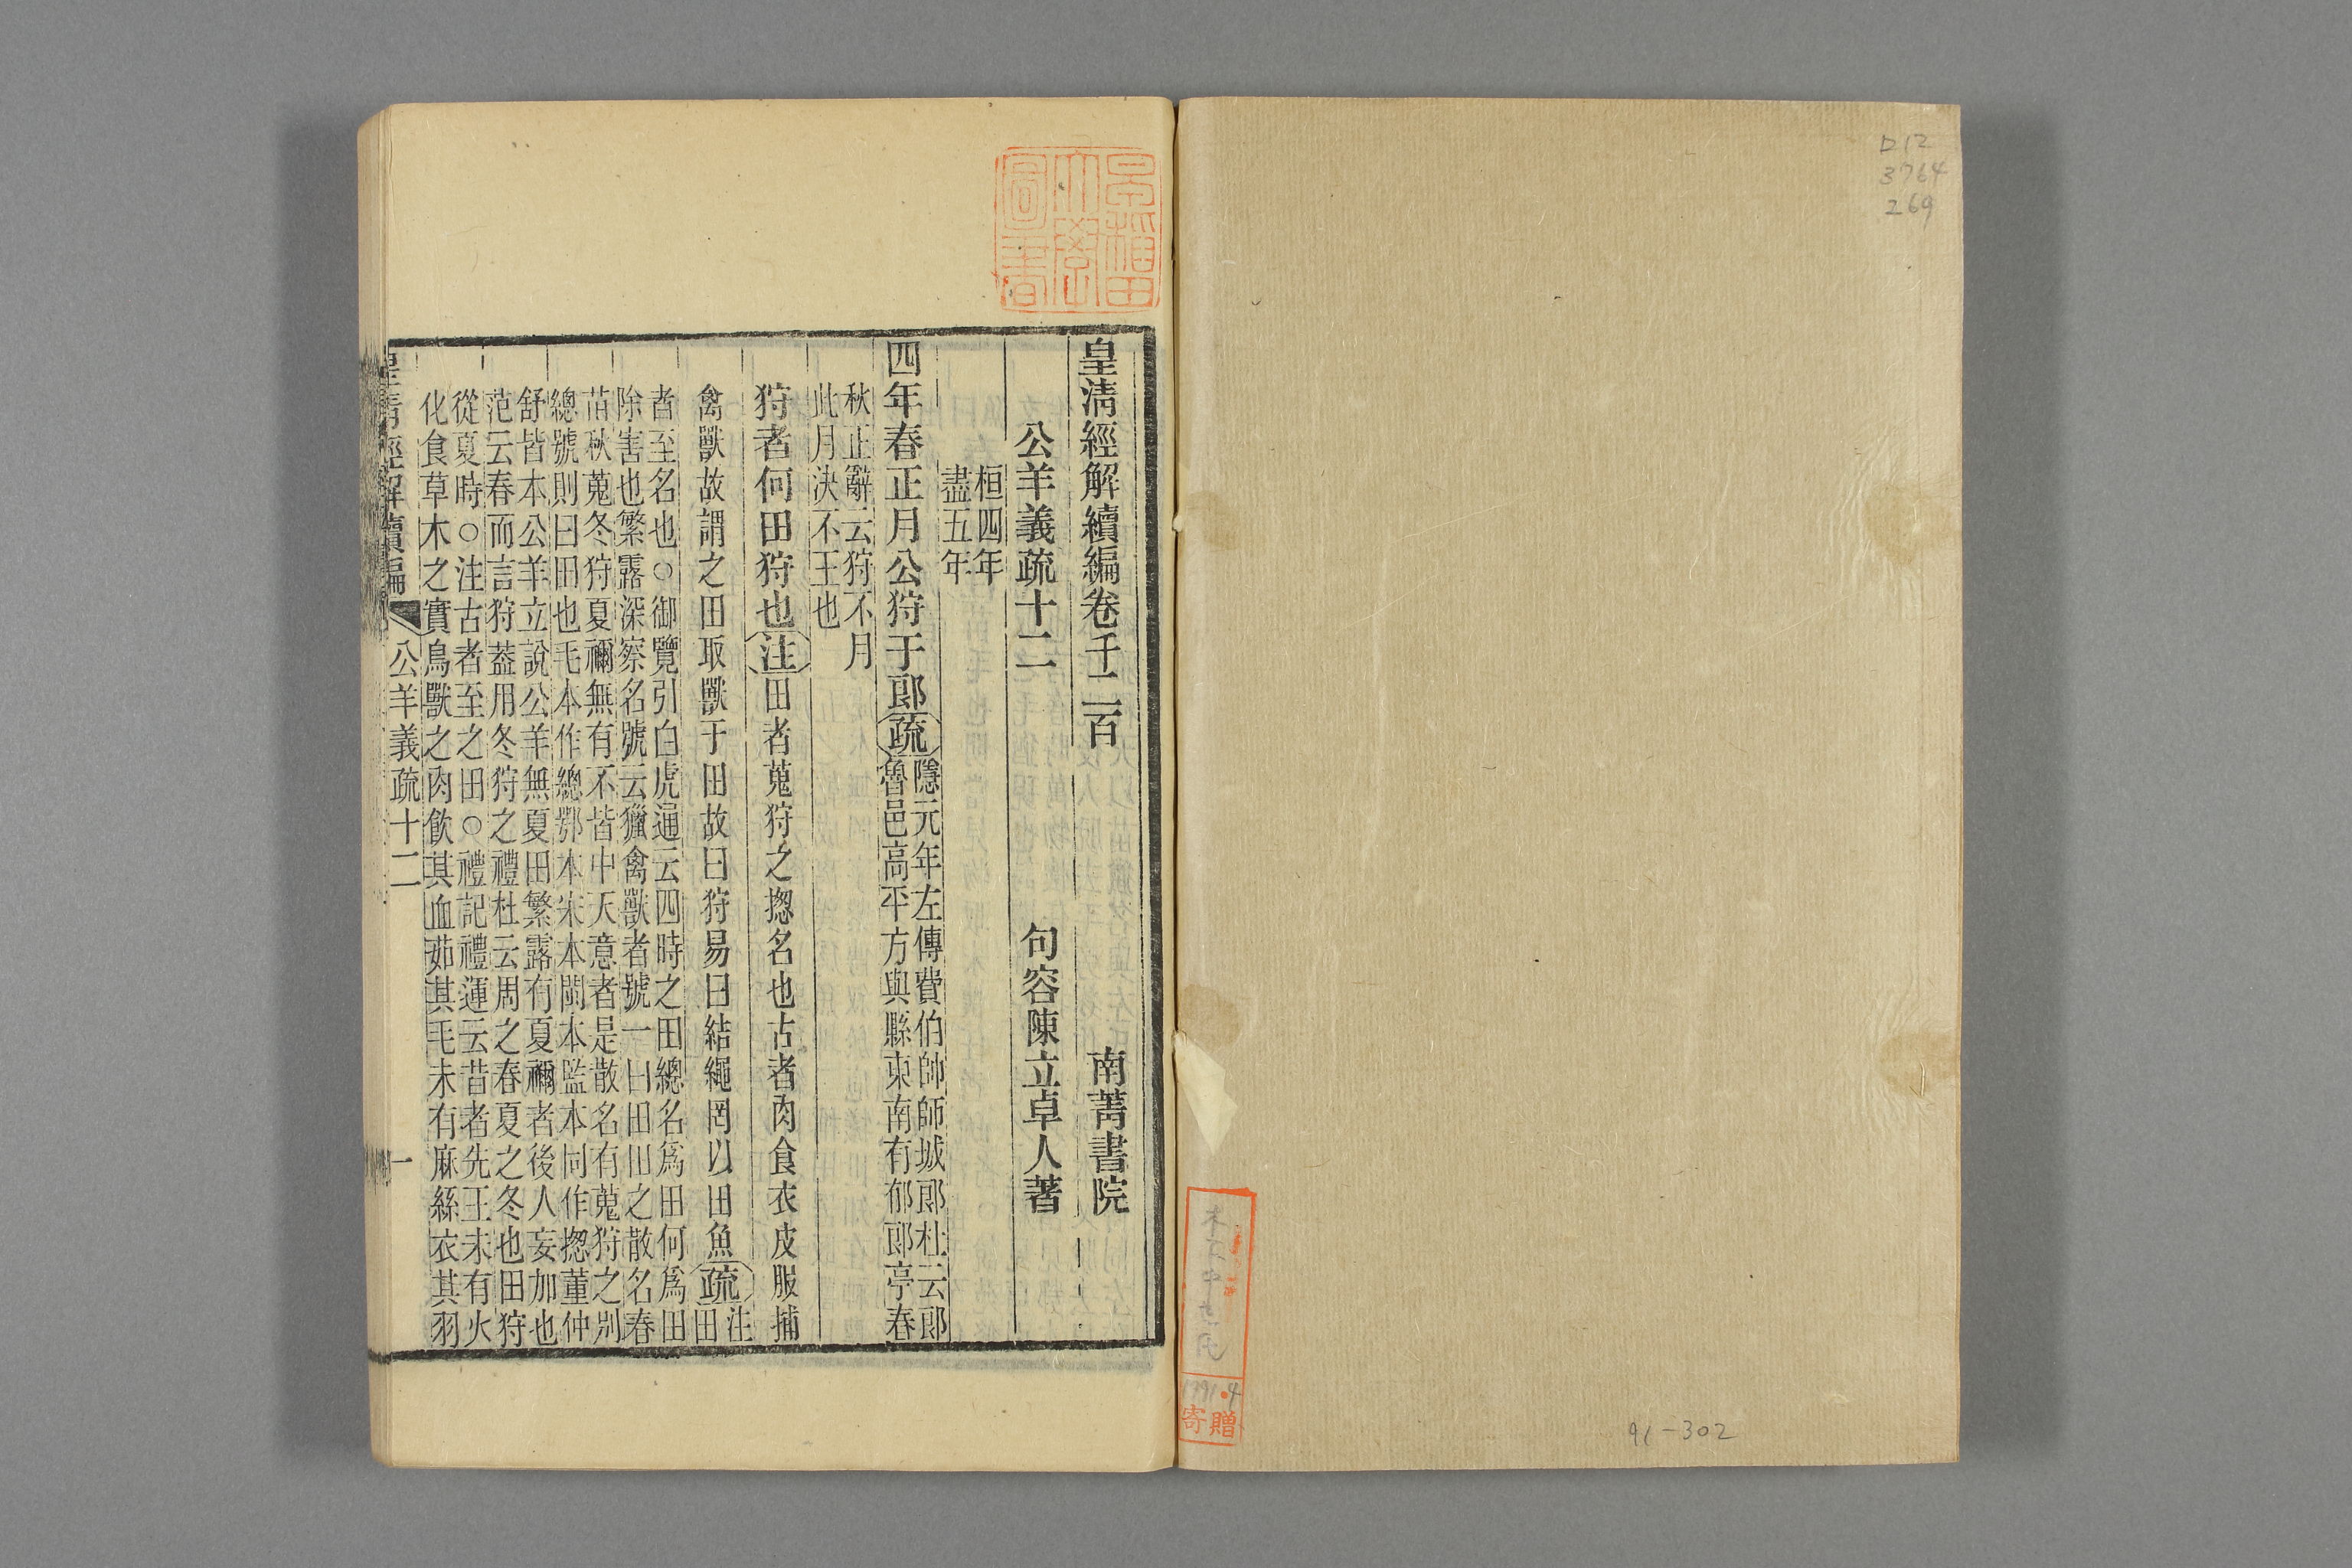 D12
3764
269
91-302
1991.4
寄贈
早稲田
大學
圖書
皇清經解續編卷千二百
南菁書院
公羊義疏十二
句容陳立卓人著
桓四年
盡五年
四年春正月公狩于郎疏隱元年左傳費伯帥師城郎杜云郎
魯邑高平方與縣東南有郁郎亭春
秋正辭云狩不月
此月決不王也
狩者何田狩也注田者蒐狩之揔名也古者肉食衣皮服捕
禽獸故謂之田取獸于田故曰狩易曰結繩罔以田魚疏注
田
者至名也○御覽引白虎通云四時之田總名爲田何爲田
除害也繁露深察名號云獵禽獸者號一曰田田之散名春
苗秋蒐冬狩夏獮無有不皆中天意者是散名有蒐狩之別
總號則曰田也毛本作總鄂本宋本閩本監本同作揔董仲
舒皆本公羊立說公羊無夏田繁露有夏獮者後人妄加也
范云春而言狩葢用冬狩之禮杜云周之春夏之冬也田狩
從夏時○注古者至之田○禮記禮運云昔者先王未有火
化食草木之實鳥獸之肉飲其血茹其毛未有麻絲衣其羽
皇清經解續編
公羊義疏十二
一